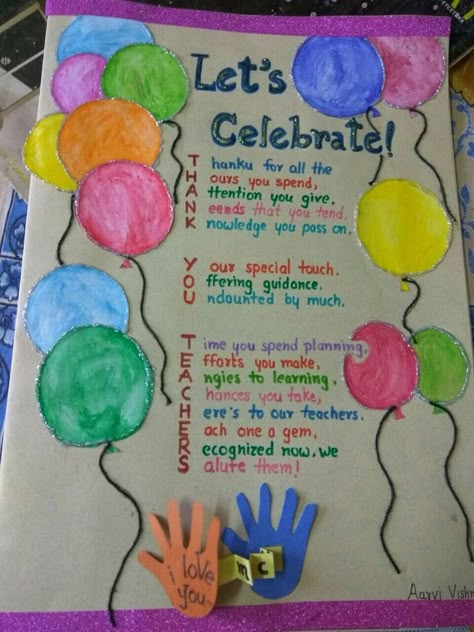 Let's
Celebrate!
Thanku for all the
Hours you spend,
Attention you give.
Neends that you tend.
Knowledge you pass on.
Your special touch.
Offering guidance.
Undaunted by much.
Time you spend planning,
Efforts you make,
Angies to learning.
Chances you take,
Here's to our teachers.
Each one a gem,
Recognized now, we
Salute them!
i love
you
m c
Aarvi